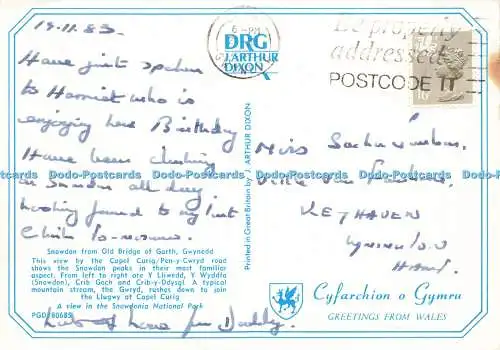 19.11.83.
Have just spoken
to Harriet who is
enjoying her Birthday
Have been climbing
on Snowdon all day
looking forward to my last
climb to-morrow.
Lots of love from Daddy.
6 - PM
DRG
J. ARTHUR
DIXON
Be properly
addressed
POSTCODE IT
Miss
KEYHAVEN
Lymington
Hants
Printed in Great Britain by J. ARTHUR DIXON
Snowdon from Old Bridge of Garth, Gwynedd
This view by the Capel Curig/Pen-y-Gwryd road
shows the Snowdon peaks in their most familiar
aspect. From left to right are Y Lliwedd, Y Wyddfa
(Snowdon), Crib Goch and Crib-y-Ddysgl. A typical
mountain stream, the Gwryd, rushes down to join
the Llugwy at Capel Curig
A view in the Snowdonia National Park
Cyfarchion o Gymru
GREETINGS FROM WALES
Dodo-Postcards